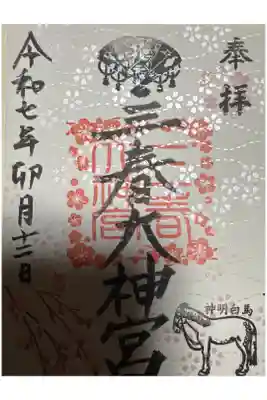 奉拝
三春大神宮
三春
大神宮
令和七年卯月十二日
神明白馬